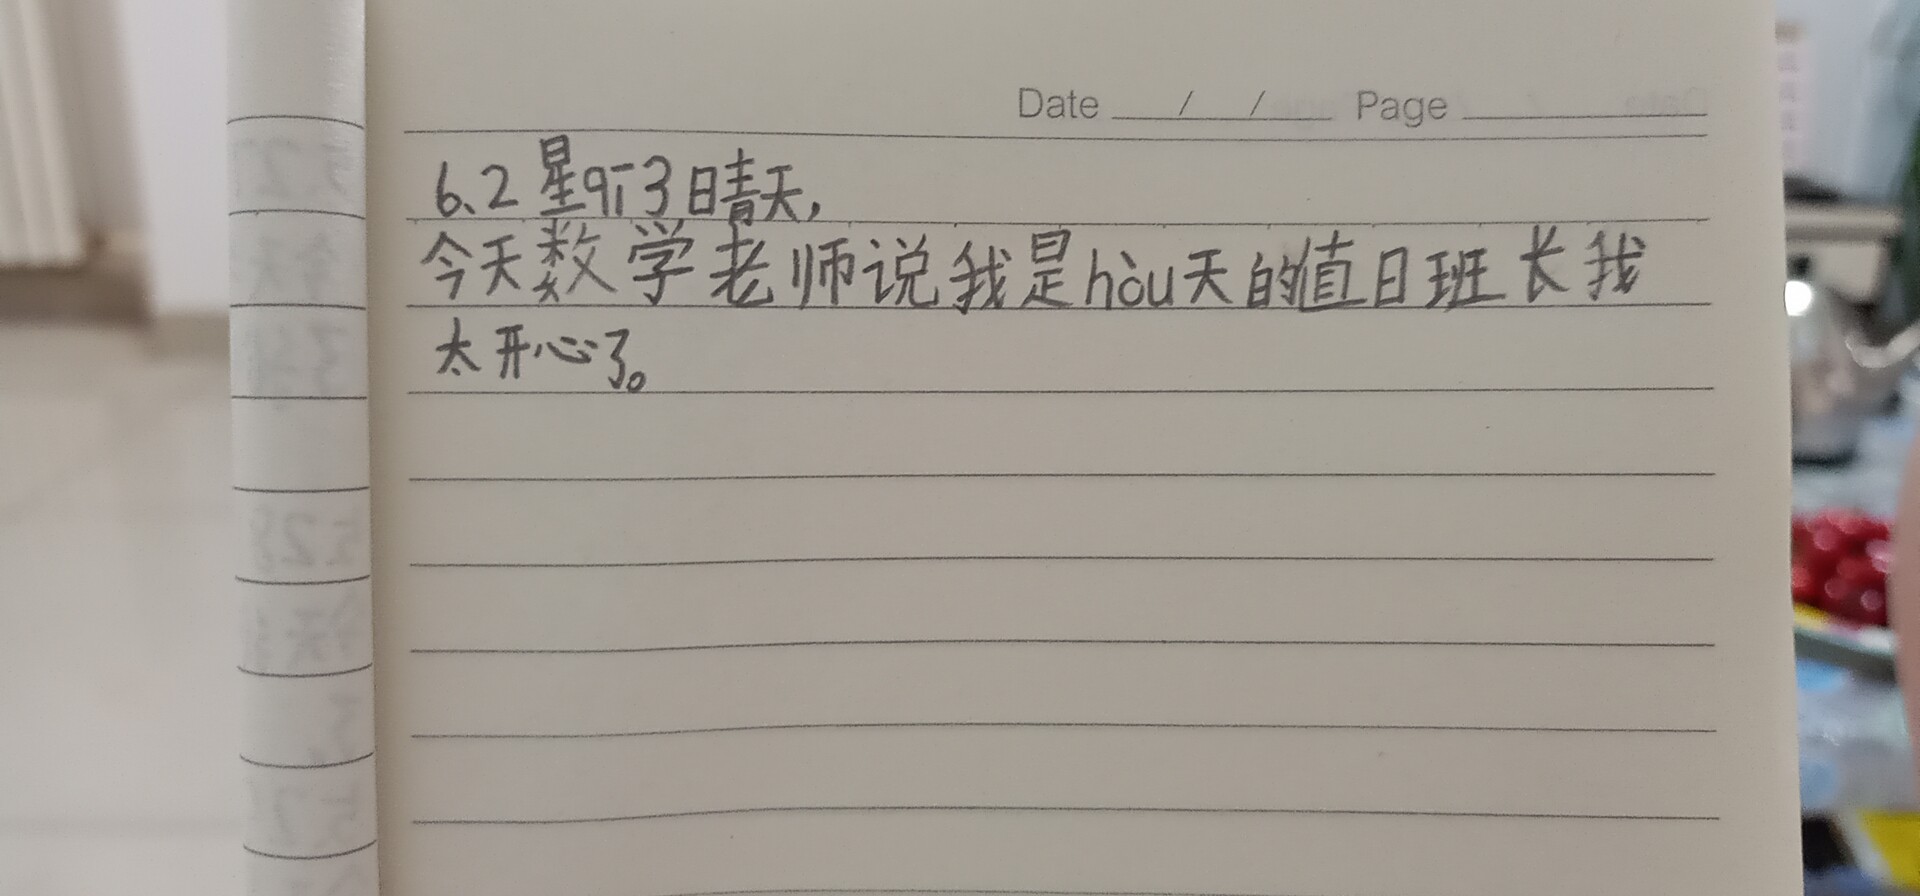 Date / / Page
6.2星qī3晴天,
今天数学老师说我是hòu天的值日班长我
太开心了。